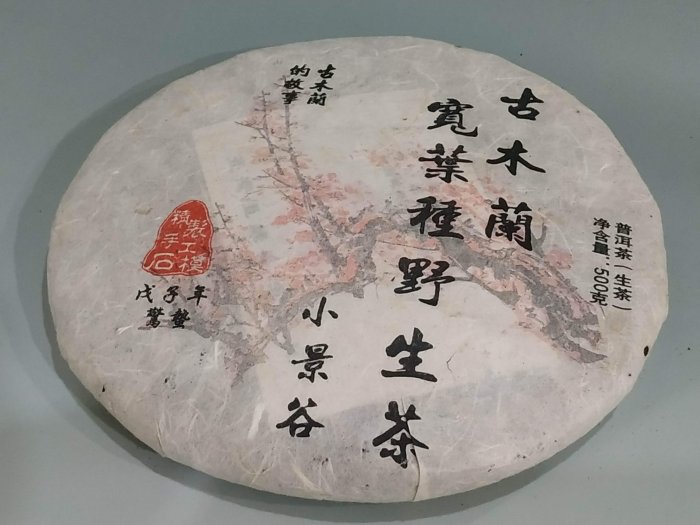 普洱茶（生茶）
净含量：500克
古木蘭
寬葉種野生茶
小景谷
古木蘭
的故事
精製
手工
石模
戊子年
驚蟄